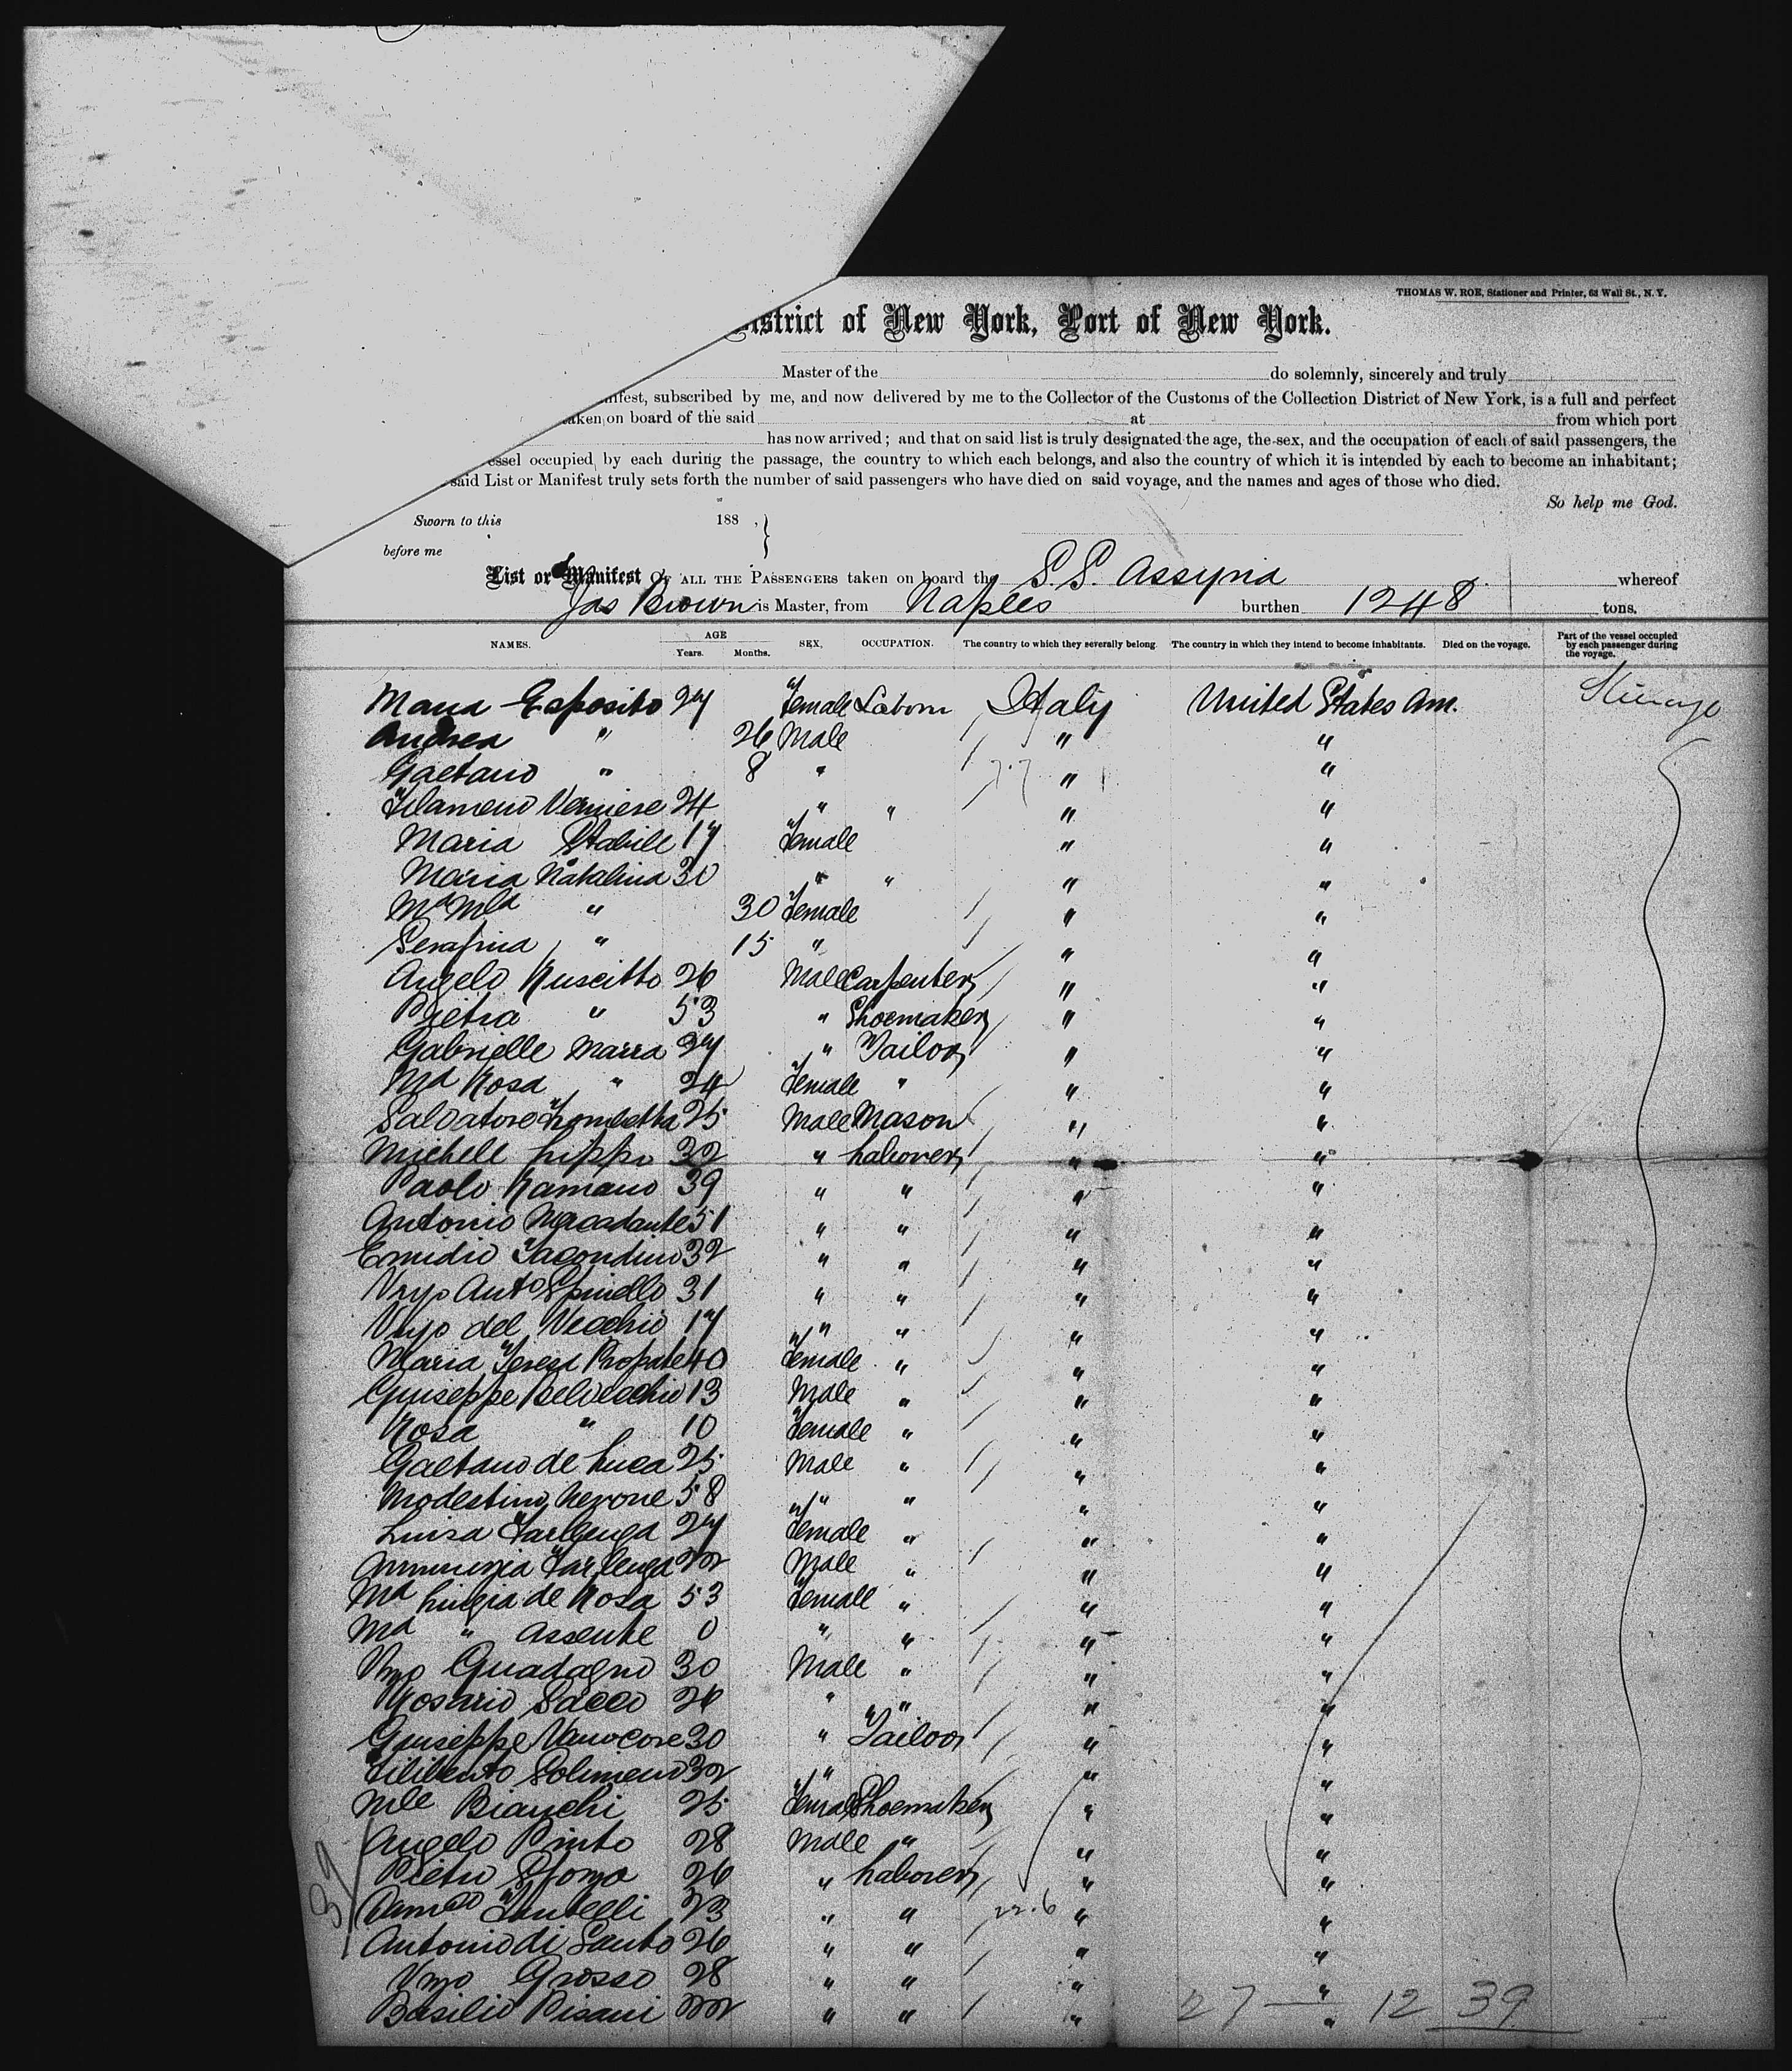 THOMAS W. ROE, Stationer and Printer, 63 Wall St., N. Y.
District of New York, Port of New York.
Master of the do solemnly, sincerely and truly
nifest, subscribed by me, and now delivered by me to the Collector of the Customs of the Collection District of New York, is a full and perfect
taken on board of the said at from which port
has now arrived; and that on said list is truly designated the age, the sex, and the occupation of each of said passengers, the
essel occupied by each during the passage, the country to which each belongs, and also the country of which it is intended by each to become an inhabitant;
said List or Manifest truly sets forth the number of said passengers who have died on said voyage, and the names and ages of those who died.
So help me God.
Sworn to this 188 , }
before me
List or Manifest OF ALL THE PASSENGERS taken on board the S.S. Assyria whereof
Jas Brown is Master, from Naples burthen 1248 tons.
NAMES. AGE Years. Months. SEX, OCCUPATION. The country to which they severally belong. The country in which they intend to become inhabitants. Died on the voyage. Part of the vessel occupied by each passenger during the voyage.
Maria Esposito 27 Female Italy United States Am. Steerage
Andrea " 26 Male " "
Gaetano " 8 " " "
Verniere 24 " " " "
Maria Stabile 17 Female " "
Maria Natalina 30 " " " "
" 30 Female " "
Serafina " 15 " " "
Angelo Ruscitto 26 Male Carpenter " "
Pietra " 53 " Shoemaker " "
Gabrielle Marra 37 " Tailor " "
Ma Rosa " 24 Female " " "
Salvatore 25 Male Mason " "
Michele Lippo 32 " Laborer " "
Paolo Ramano 39 " " " "
Antonio Mercadante 51 " " " "
Emidio 32 " " " "
Anto Spinello 31 " " " "
del Vecchio 17 " " " "
Maria Teresa Propate 40 Female " " "
Giuseppe Delvecchio 13 Male " " "
Rosa " 10 Female " " "
Gaetano de Luca 25 Male " " "
Modestino Nerone 58 " " " "
Luisa 27 Female " " "
22 Male " " "
Ma Luigia de Rosa 53 Female " " "
Ma " Assente 0 " " " "
Vnzo Guadagno 30 Male " " "
Rosario Sacco 26 " " " "
Giuseppe Vanocore 30 " Tailor " "
Filiberto Solimeno 32 " " "
Mle Bianchi 25 Female Shoemaker " "
Angelo Pinto 28 Male " " "
39 Pietro 26 " Laborer " "
23 " " 22.6 " "
Antonio di Santo 26 " " " "
Vnzo Grosso 28 " " " "
Basilio Pisani 22 " " " "
27 — 12 39